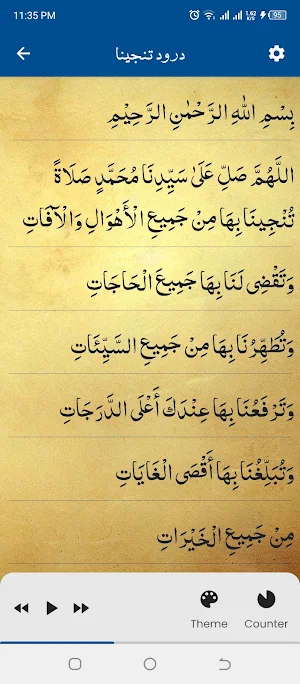 11:35 PM 1.82 K/s 95
درود تنجینا
بِسْمِ اللهِ الرَّحْمٰنِ الرَّحِيْمِ
اللَّهُمَّ صَلِّ عَلَىٰ سَيِّدِنَا مُحَمَّدٍ صَلَاةً
تُنْجِينَا بِهَا مِنْ جَمِيعِ الْأَهْوَالِ وَالْآفَاتِ
وَتَقْضِى لَنَا بِهَا جَمِيعَ الْحَاجَاتِ
وَتُطَهِّرُنَا بِهَا مِنْ جَمِيعِ السَّيِّئَاتِ
وَتَرْفَعُنَا بِهَا عِنْدَكَ أَعْلَى الدَّرَجَاتِ
وَتُبَلِّغُنَا بِهَا أَقْصَى الْغَايَاتِ
مِنْ جَمِيعِ الْخَيْرَاتِ
Theme Counter